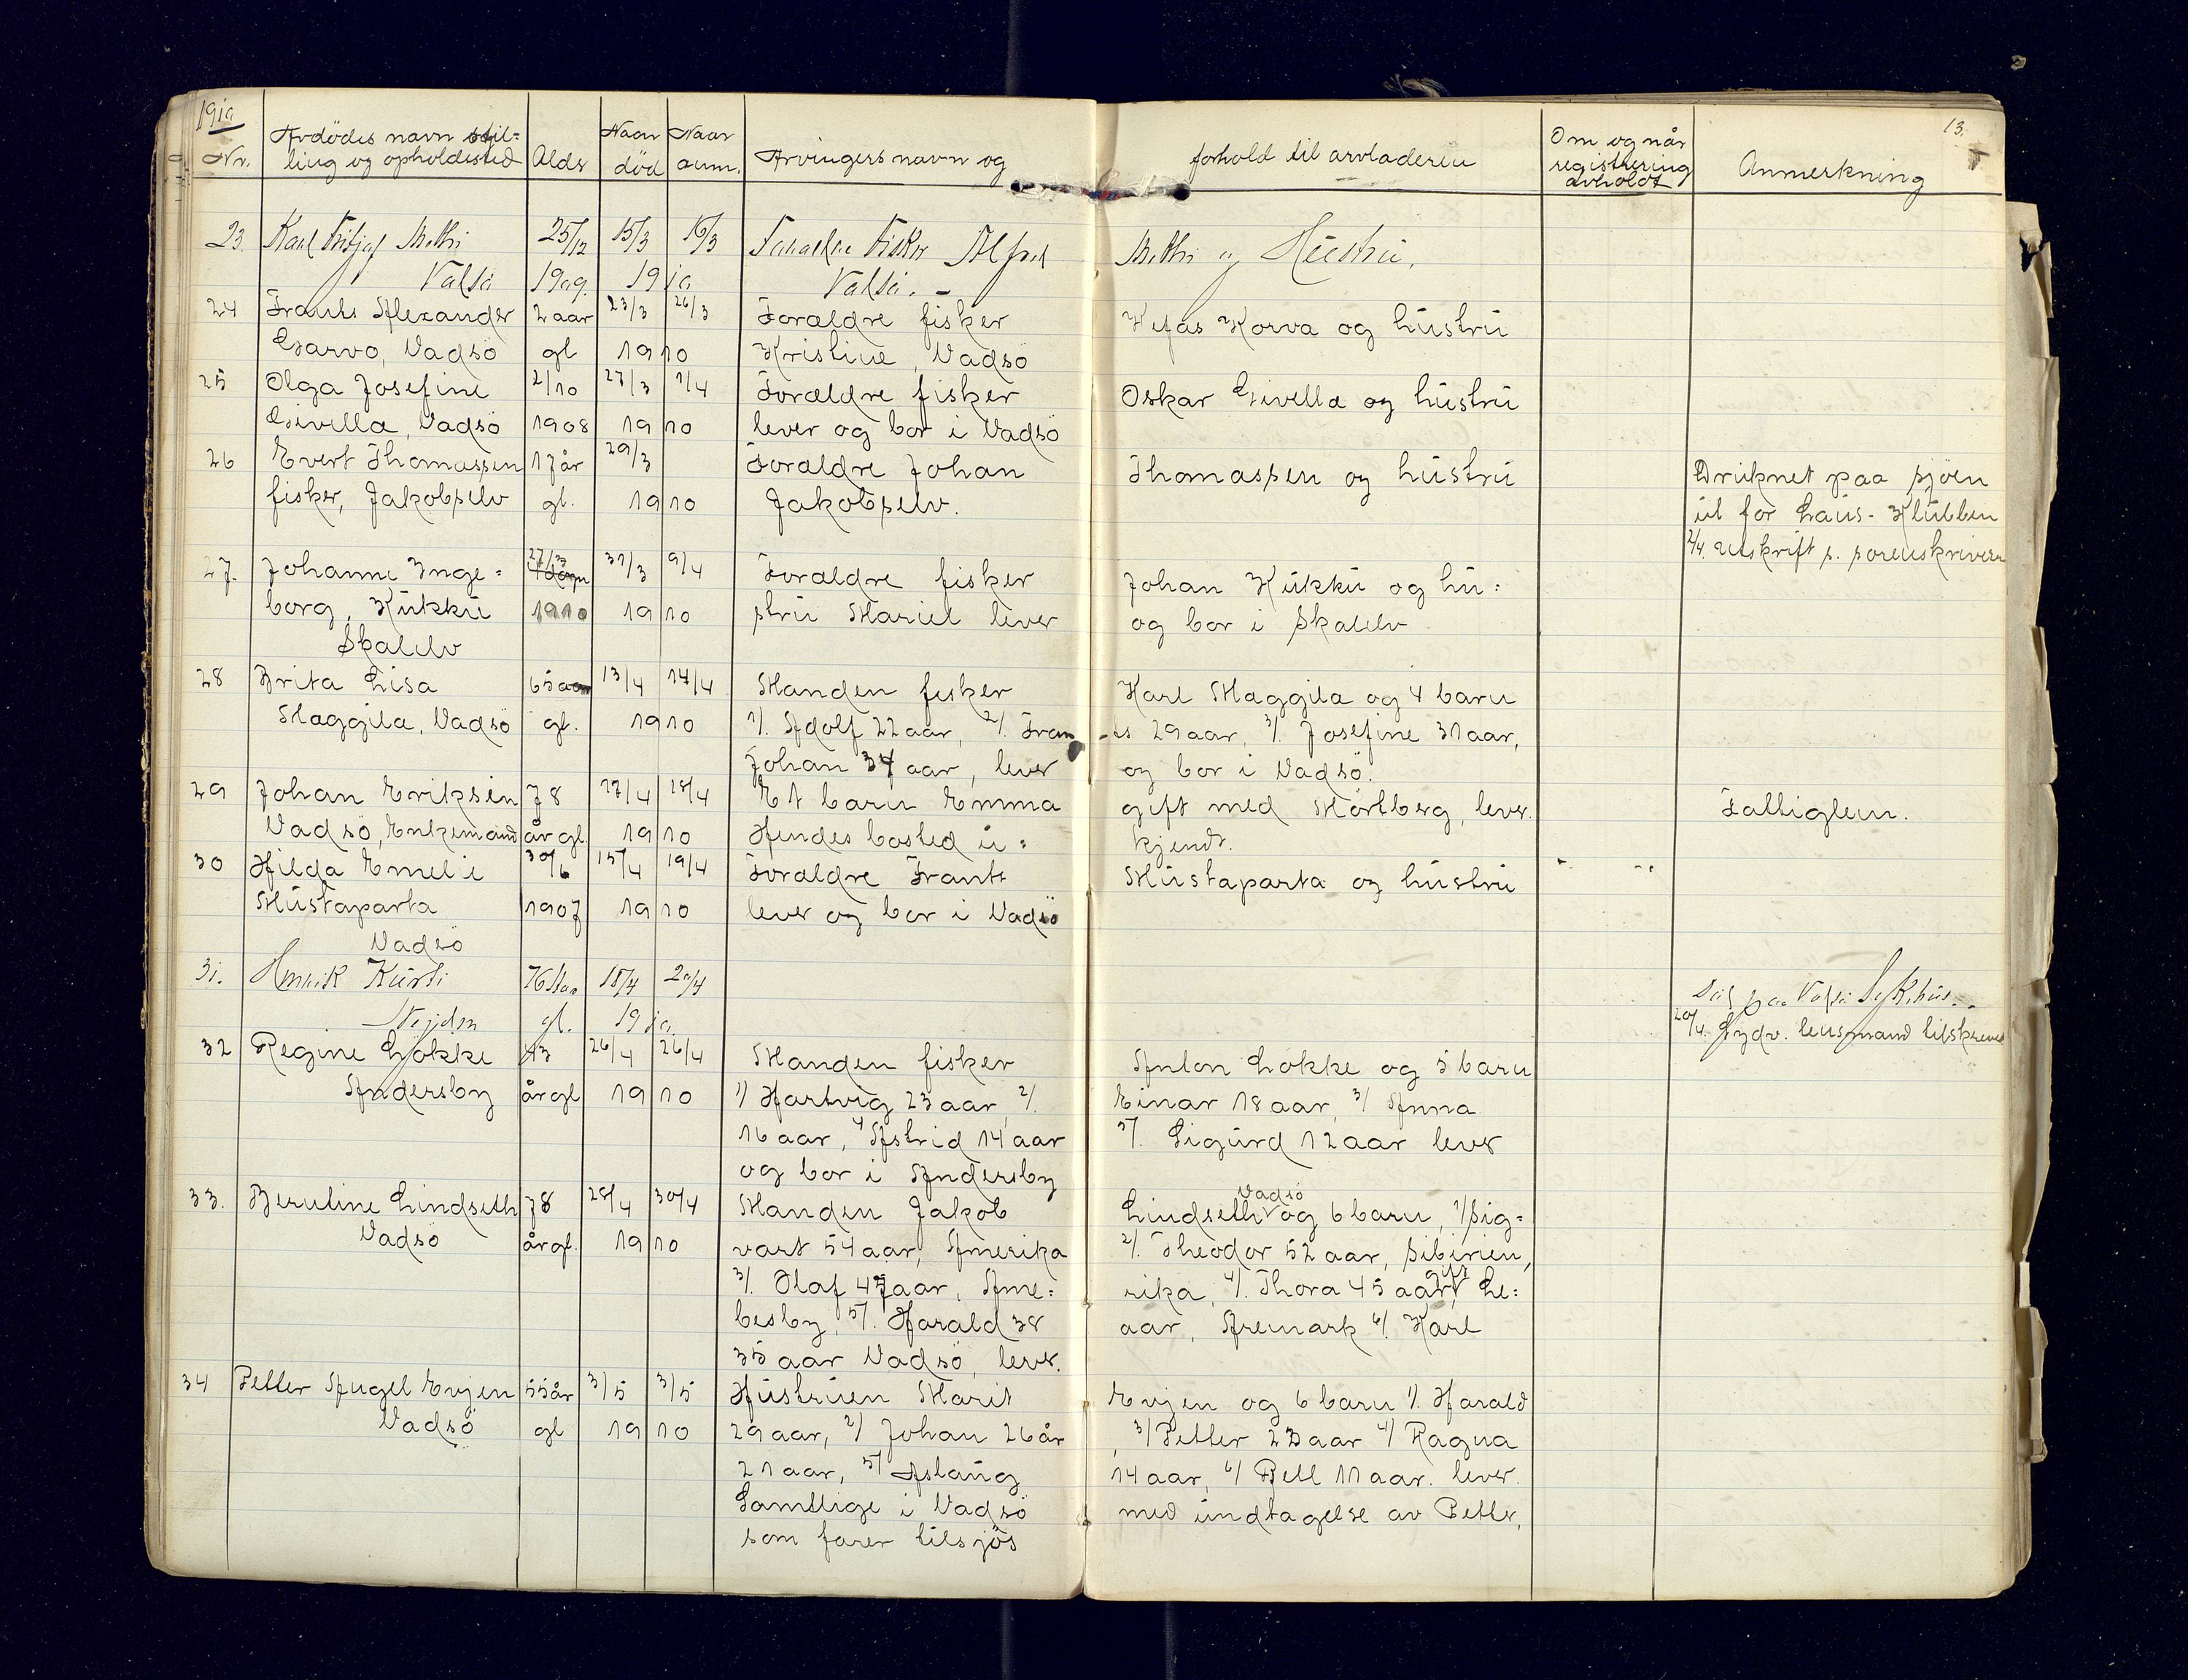 1910 13.
Nr. Avdödes navn stil= Alds Naar Naar Arvingers navn og forhold til arvladeren Om og når Anmerkning
ling og opholdssted död anm. registrering
avholdt
23. Karl Fritjof Mathi 25/12 15/3 16/3 Forældre Fisker Alfred Mathi og Hustru.
Vadsö 1909. 1910 Vadsö. -
24 Frants Alexander 2 aar 23/3 26/3 Foraldre fisker Kefas Korva og hustru
Garvo, Vadsö gl 1910 Kristine, Vadsö
25 Olga Josefine 2/10 27/3 1/4 Foraldre fisker Oskar Givella og hustru
Givella, Vadsö 1908 1910 lever og bor i Vadsö
26 Evert Thomassen 17 år 29/3 Foraldre Johan Thomassen og hustru Druknet paa sjöen
fisker, Jakobselv gl. 1910 Jakobselv. ut for Laus-Klubben
2/4. Utskrift s. sorenskriveren
27. Johanne Inge= 27/3 31/3 9/4 Foraldre fisker Johan Kukku og hu=
borg, Kukku 1910 1910 stru Mariel lever og bor i Skalelv
Skalelv
28 Brita Lisa 65 aar 13/4 14/4 Manden fisker Karl Maggila og 4 barn
Maggila, Vadsö gl. 1910 1/. Adolf 22 aar, 2/. Fran-ts 29 aar, 3/. Josefine 31 aar,
Johan 34 aar, lever og bor i Vadsö.
29 Johan Eriksen 78 17/4 18/4 Et barn Emma gift med Mörtberg, lever. Fattiglem.
Vadsö, Enkemand år gl. 1910 Hendes bosted u= kjendt.
30 Hilda Emelie 30/6 15/4 19/4 Foraldre Frants Mustaparta og hustru
Mustaparta 1907 1910 lever og bor i Vadsö
Vadsö
31. Henrik Kurti 76 Aar 18/4 20/4 Död paa Vadsö Sykehus. -
Nejden gl. 1910. 20/4. Sydv. lensmand tilskrevet
32 Regine Lökke 43 26/4 26/4 Manden fisker Anton Lokke og 5 barn
Andersby år gl 1910 1/ Hartvig 23 aar, 2/. Einar 18 aar, 3/ Anna
16 aar, 4/ Astrid 14 aar 5/. Sigurd 12 aar lever
og bor i Andersby
33. Berntine Lindseth 78 28/4 30/4 Manden Jakob Lindseth Vadsö og 6 barn, 1/ Sig=
Vadsö år gl. 1910 vart 54 aar, Amerika 2/. Theodor 52 aar, Sibirien,
3/. Olaf 47 aar, Ame= rika, 4/. Thora 45 aar, gift Le=
besby, 5/. Harald 38 aar, Aremark 6/. Karl
35 aar Vadsö, lever.
34 Petter Angel Evjen 55 år 3/5 3/5 Hustruen Marit Evjen og 6 barn 1/. Harald
Vadsö gl 1910 29 aar, 2/ Johan 26 år, 3/ Petter 23 aar 4/ Ragna
21 aar, 5/ Aslaug 14 aar, 6/ Bell 11 aar. lever.
Samtlige i Vadsö med undtagelse av Petter,
som farer tilsjös